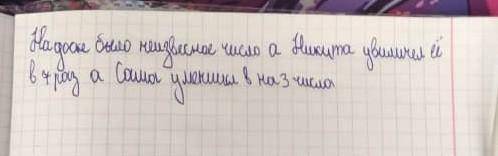 На доске было неизвесное число а Никита увиличил её
в 7 раз а Саша уменшил в на 3 числа